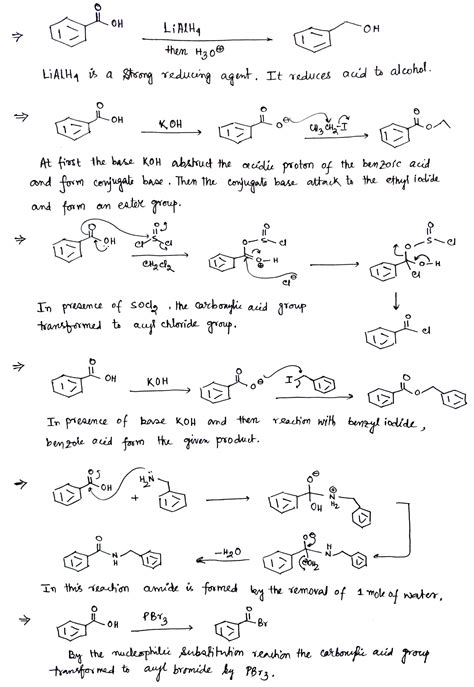 ⇒ O OH LiAlH4 then H3O⊕ OH
LiAlH4 is a strong reducing agent. It reduces acid to alcohol.
⇒ O OH KOH O O⊖ CH3CH2-I O O
At first the base KOH abstruct the acidic proton of the benzoic acid
and form conjugate base. Then the conjugate base attack to the ethyl iodide
and form an ester group.
⇒ O OH O S Cl Cl CH2Cl2 O S O Cl O-H ⊕ Cl⊖ O S O Cl O-H Cl
In presence of SOCl2, the carboxylic acid group
transformed to acyl chloride group.
O Cl
⇒ O OH KOH O O⊖ I O O
In presence of base KOH and then reaction with benzyl iodide,
benzoic acid form the given product.
⇒ O OH + H2N O⊖ OH N⊕ H2
O N H -H2O O⊖ N H OH2
In this reaction amide is formed by the removal of 1 mole of water.
⇒ O OH PBr3 O Br
By the nucleophilic substitution reaction the carboxylic acid group
transformed to acyl bromide by PBr3.